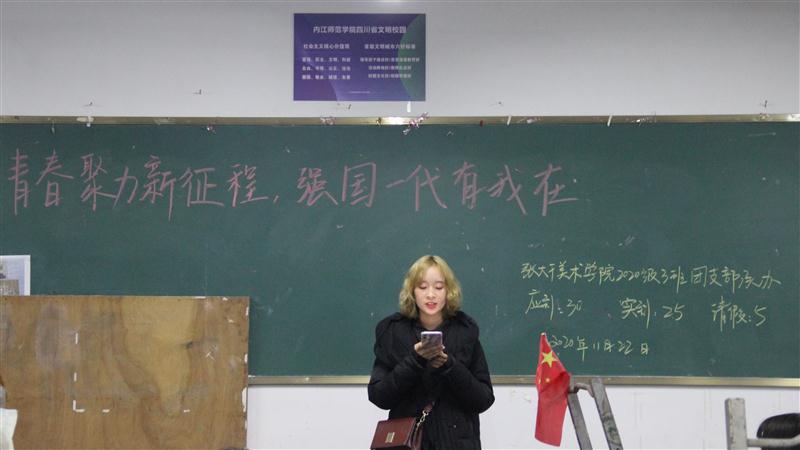 内江师范学院四川省文明校园
社会主义核心价值观
富强、民主、文明、和谐
自由、平等、公正、法治
爱国、敬业、诚信、友善
青春聚力新征程，强国一代有我在
张大千美术学院2020级3班团支部承办
应到：30 实到：25 请假：5
2020年11月22日